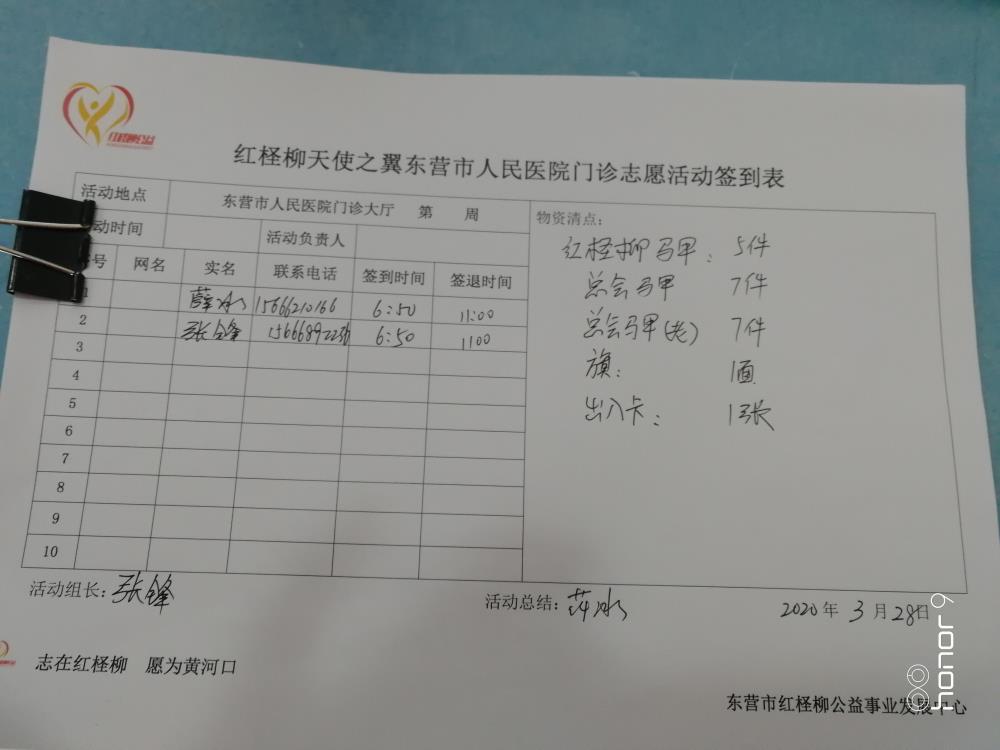 红柽柳公益
红柽柳天使之翼东营市人民医院门诊志愿活动签到表
活动地点 东营市人民医院门诊大厅 第 周
动时间 活动负责人
号 网名 实名 联系电话 签到时间 签退时间
1 薛冰 15666210166 6:50 11:00
2 张锋 6:50 1100
3
4
5
6
7
8
9
10
物资清点:
红柽柳马甲: 5件
总会马甲 7件
总会马甲(老) 7件
旗: 1面
出入卡: 1张
活动组长: 张锋
活动总结: 冰
2020年 3月28日
志在红柽柳 愿为黄河口
东营市红柽柳公益事业发展中心
honor 9